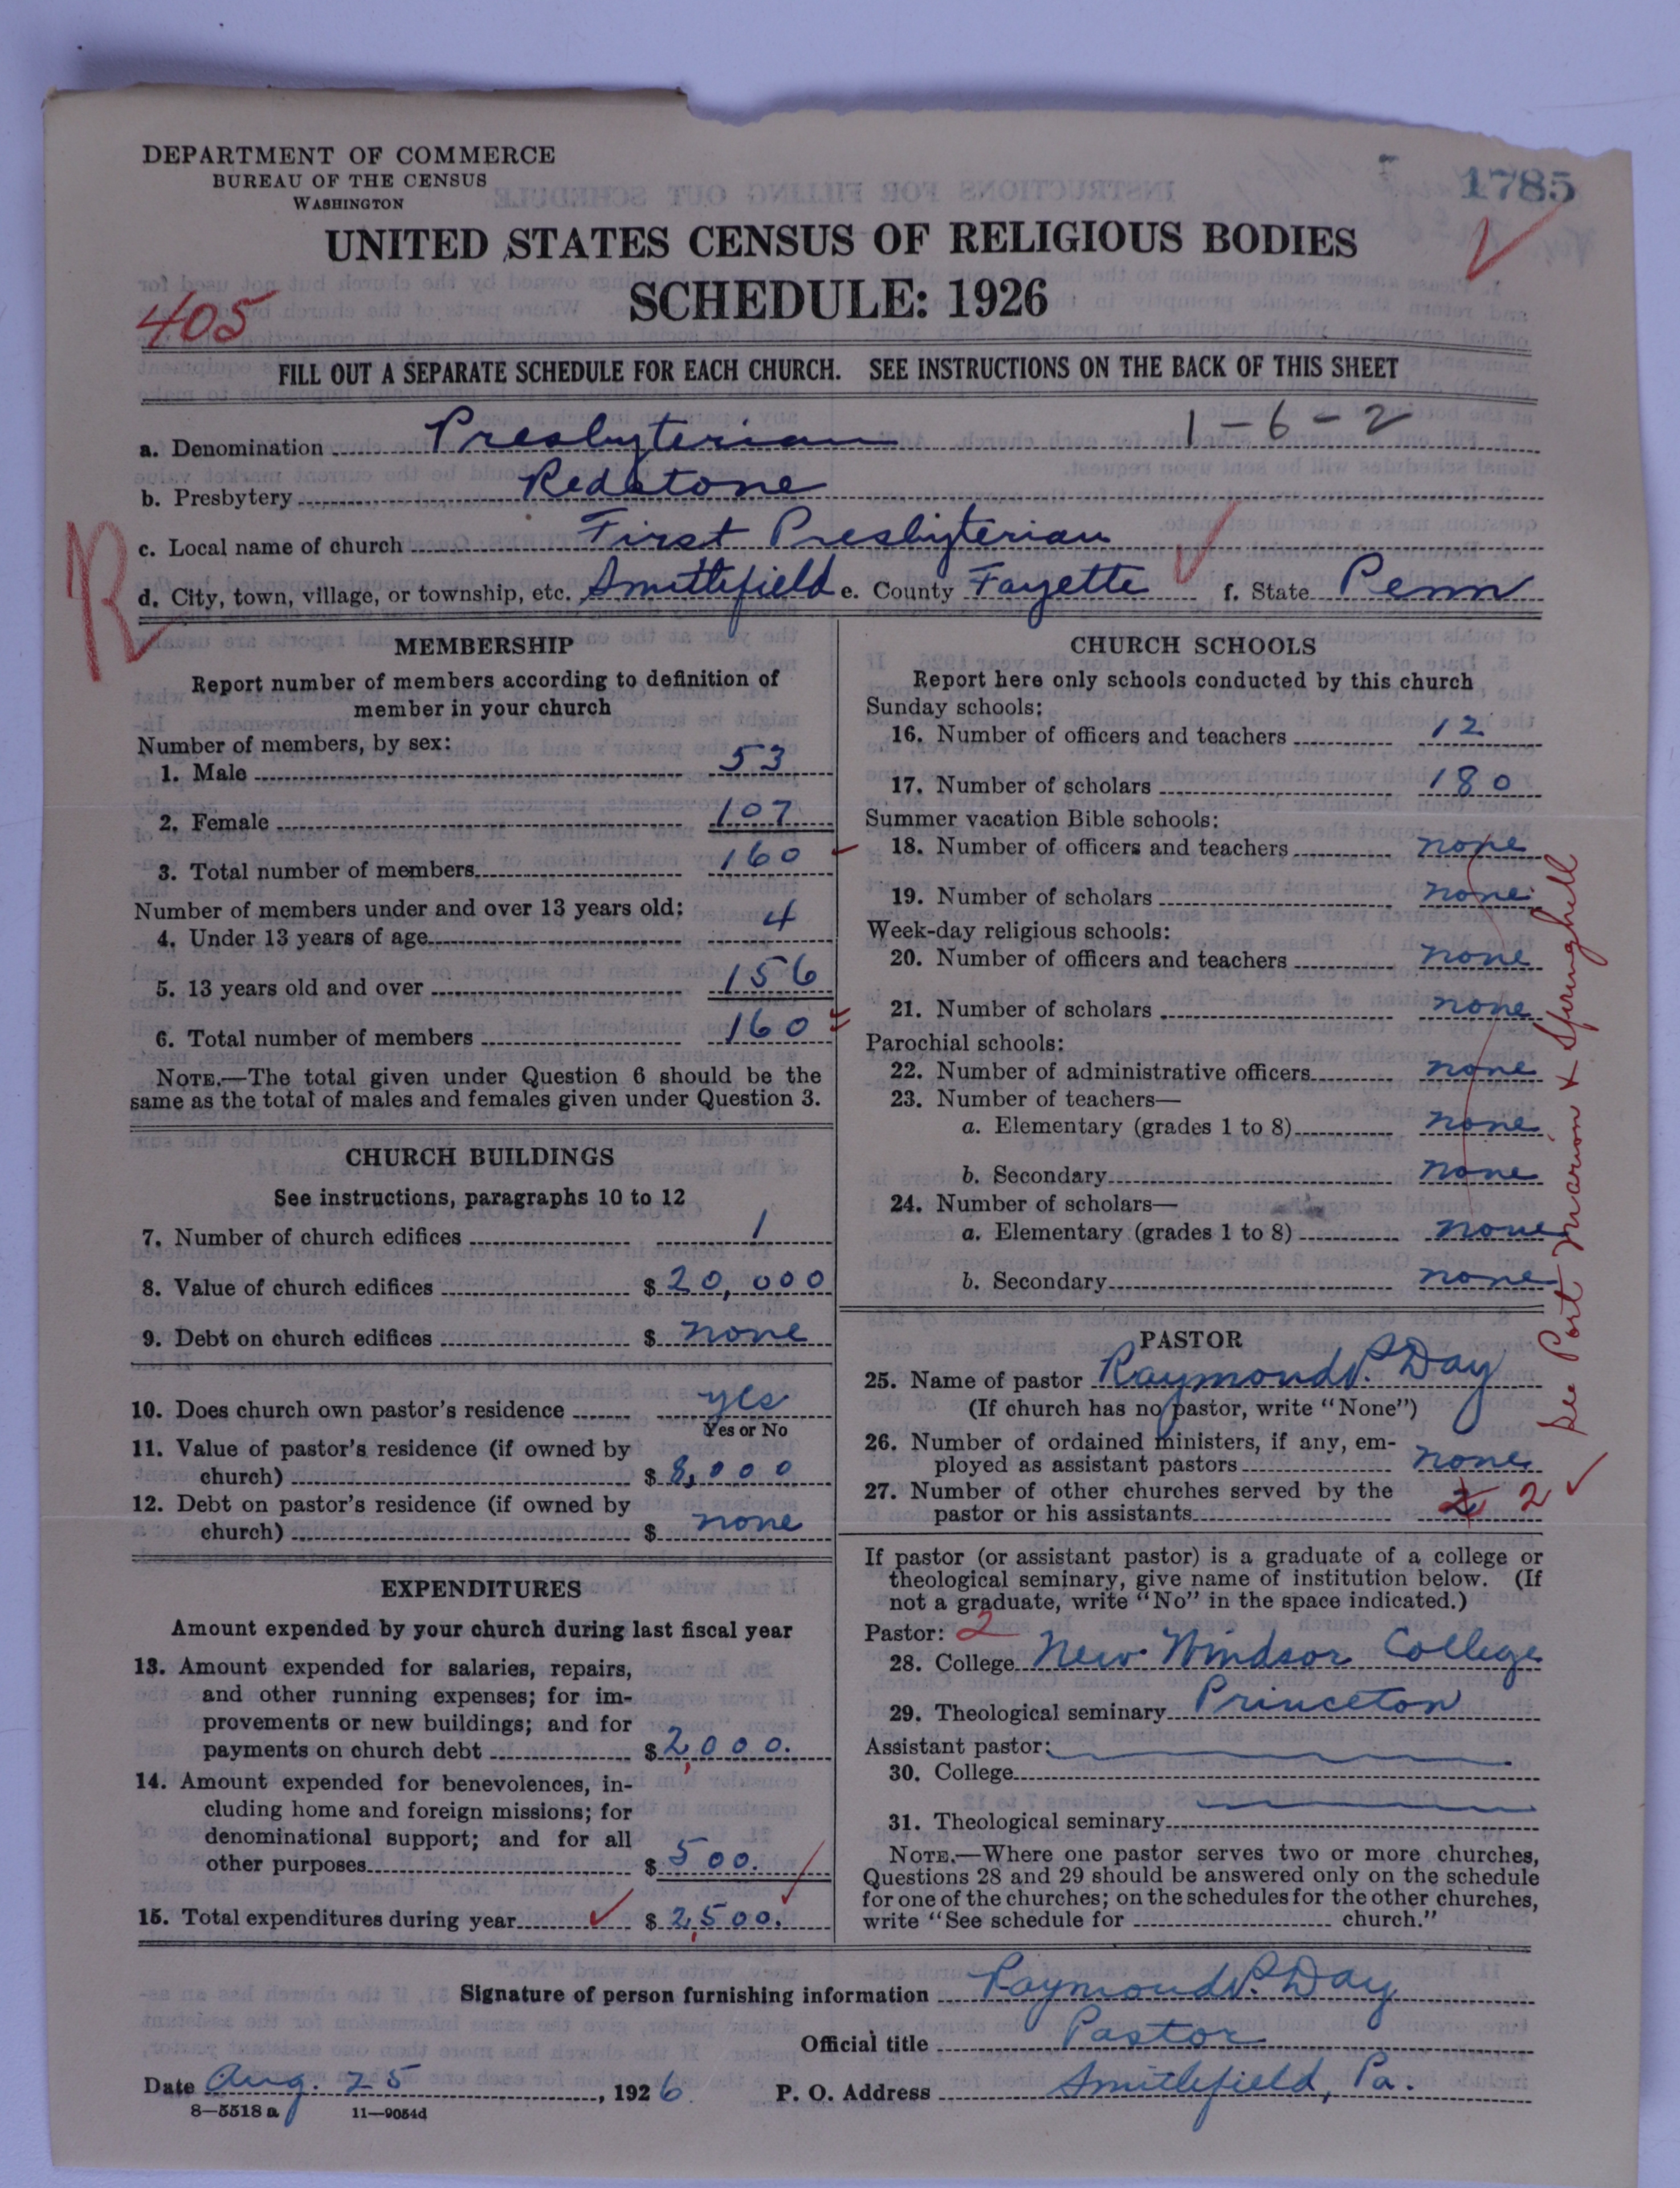 DEPARTMENT OF COMMERCE
BUREAU OF THE CENSUS
WASHINGTON
1785
UNITED STATES CENSUS OF RELIGIOUS BODIES
SCHEDULE: 1926
405
FILL OUT A SEPARATE SCHEDULE FOR EACH CHURCH. SEE INSTRUCTIONS ON THE BACK OF THIS SHEET
a. Denomination Presbyterian 1-6-2
b. Presbytery Redstone
c. Local name of church First Presbyterian
R
d. City, town, village, or township, etc. Smithfield e. County Fayette f. State Penn
MEMBERSHIP
Report number of members according to definition of
member in your church
Number of members, by sex:
1. Male 53
2. Female 107
3. Total number of members 160
Number of members under and over 13 years old:
4. Under 13 years of age 4
5. 13 years old and over 156
6. Total number of members 160
NOTE.—The total given under Question 6 should be the
same as the total of males and females given under Question 3.
CHURCH BUILDINGS
See instructions, paragraphs 10 to 12
7. Number of church edifices 1
8. Value of church edifices $ 20,000
9. Debt on church edifices $ none
10. Does church own pastor's residence yes
Yes or No
11. Value of pastor's residence (if owned by
church) $ 8,000
12. Debt on pastor's residence (if owned by
church) $ none
EXPENDITURES
Amount expended by your church during last fiscal year
13. Amount expended for salaries, repairs,
and other running expenses; for im-
provements or new buildings; and for
payments on church debt $ 2,000.
14. Amount expended for benevolences, in-
cluding home and foreign missions; for
denominational support; and for all
other purposes $ 500.
15. Total expenditures during year $ 2,500.
CHURCH SCHOOLS
Report here only schools conducted by this church
Sunday schools:
16. Number of officers and teachers 12
17. Number of scholars 180
Summer vacation Bible schools:
18. Number of officers and teachers none
19. Number of scholars none
Week-day religious schools:
20. Number of officers and teachers none
21. Number of scholars none
Parochial schools:
22. Number of administrative officers none
23. Number of teachers—
a. Elementary (grades 1 to 8) none
b. Secondary none
24. Number of scholars—
a. Elementary (grades 1 to 8) none
b. Secondary none
See Port Marion & Springhill
PASTOR
25. Name of pastor Raymond P. Day
(If church has no pastor, write "None")
26. Number of ordained ministers, if any, em-
ployed as assistant pastors none
27. Number of other churches served by the
pastor or his assistants 2 2
If pastor (or assistant pastor) is a graduate of a college or
theological seminary, give name of institution below. (If
not a graduate, write "No" in the space indicated.)
Pastor: 2
28. College New Windsor College
29. Theological seminary Princeton
Assistant pastor:
30. College
31. Theological seminary
NOTE.—Where one pastor serves two or more churches,
Questions 28 and 29 should be answered only on the schedule
for one of the churches; on the schedules for the other churches,
write "See schedule for church."
Signature of person furnishing information Raymond P. Day
Official title Pastor
Date Aug. 25, 1926 P. O. Address Smithfield, Pa.
8—5518 a 11—9054d